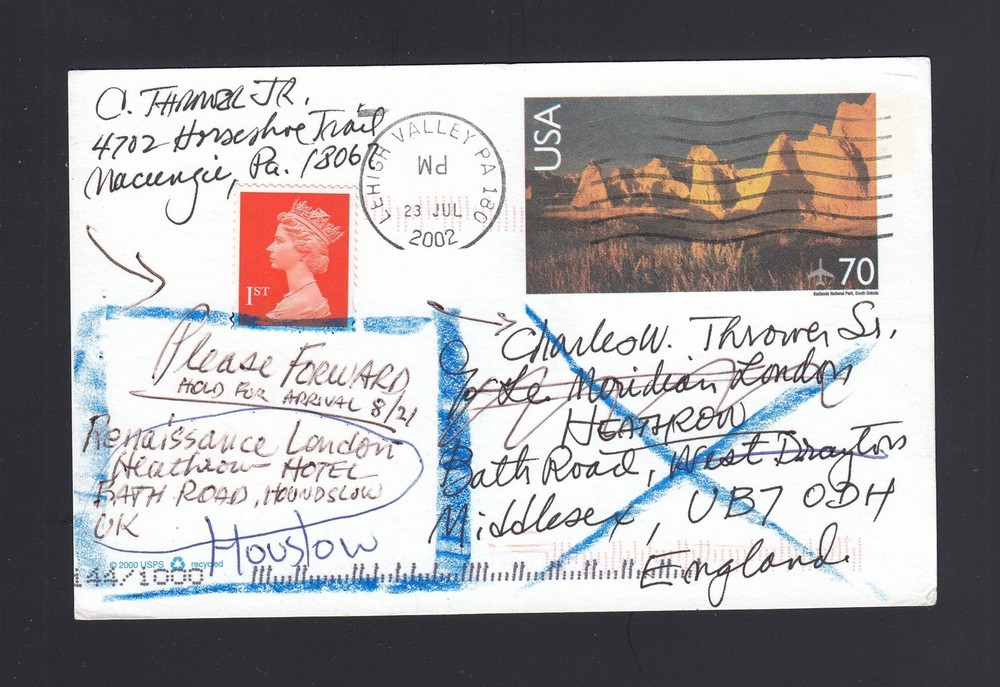 C. THROWER JR.
4702 Horseshoe Trail
Macungie, Pa. 18062
LEHIGH VALLEY PA 180
PM
23 JUL
2002
USA
70
Badlands National Park, South Dakota
1ST
Please FORWARD
HOLD FOR ARRIVAL 8/21
Renaissance London
Heathrow HOTEL
BATH ROAD, HOUNDSLOW
UK
Houslow
Charles W. Thrower Sr.
c/o Le Meridian London
HEATHROW
Bath Road, West Drayton
Middlesex, UB7 0DH
England.
© 2000 USPS recycled
144/1000